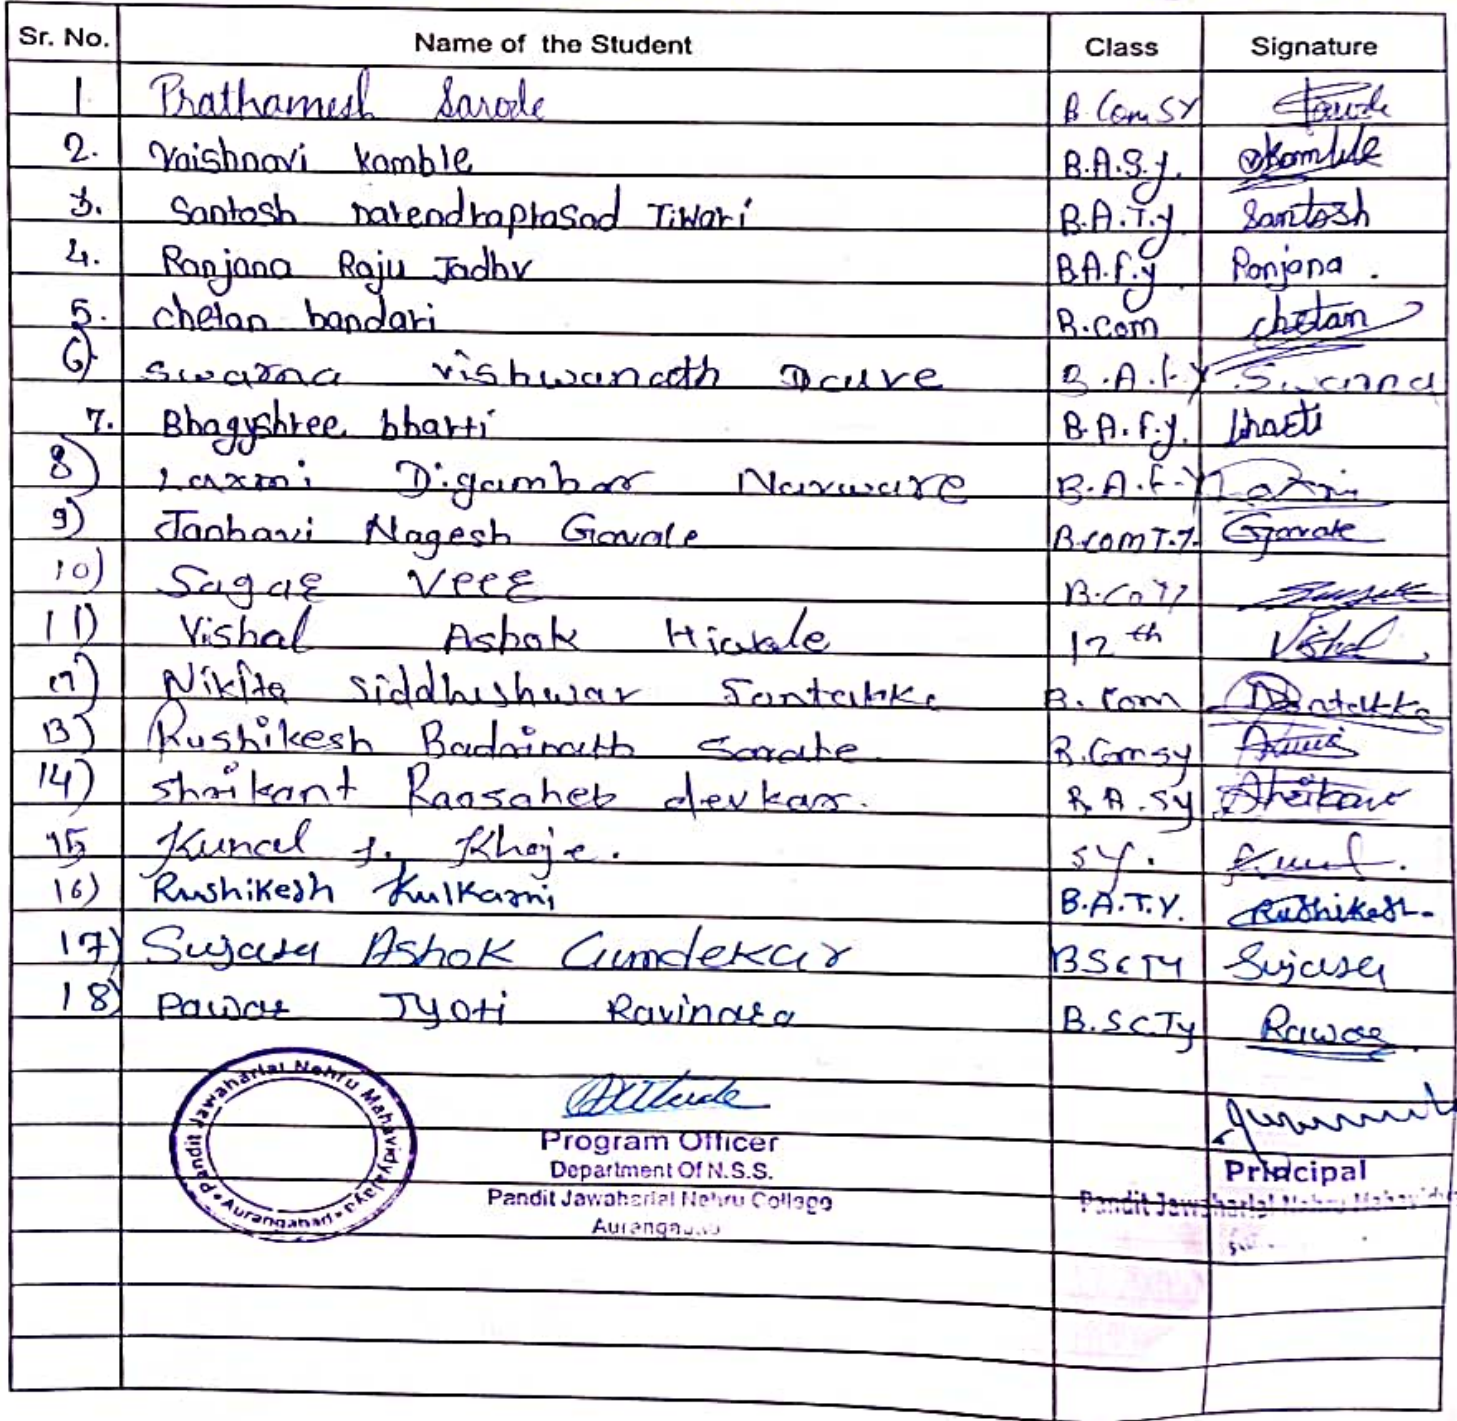 Sr. No. Name of the Student Class Signature
1. Prathamesh Sarode B.Com SY
2. Vaishnavi kamble B.A.S.y. Kamble
3. Santosh narendraprasad Tiwari B.A.T.y Santosh
4. Ranjana Raju Jadhv B.A.f.y Ranjana .
5. chetan bandari B.com chetan
6) swarna vishwanath Dauve B.A.f.Y Swarna
7. Bhagyshree bharti B.A.f.y. bharti
8) Laxmi Digambar Narware B.A.f.Y Laxmi
9) Janhavi Nagesh Gavale B.com T.Y. Gavale
10) Sagar Veer
11) Vishal Ashok Hiwale 12th Vishal
Nikita Siddheshwar Santukke B.Com Santukke
13) Rushikesh Badrinath Sarate B.Com sy
14) shrikant Raosaheb devkar. B.A.sy Shrikant
15 Kunal Khaje. SY.
16) Rushikesh Kulkarni B.A.T.Y. Rushikesh
17) Sujata Ashok Gumdekar BSc TY Sujata
18) Pawar Jyoti Ravindra B.Sc.Ty Pawar
Pandit Jawaharlal Nehru Mahavidyalaya • Aurangabad •
Program Officer
Department Of N.S.S.
Pandit Jawaharlal Nehru College
Aurangabad
Principal
Pandit Jawaharlal Nehru